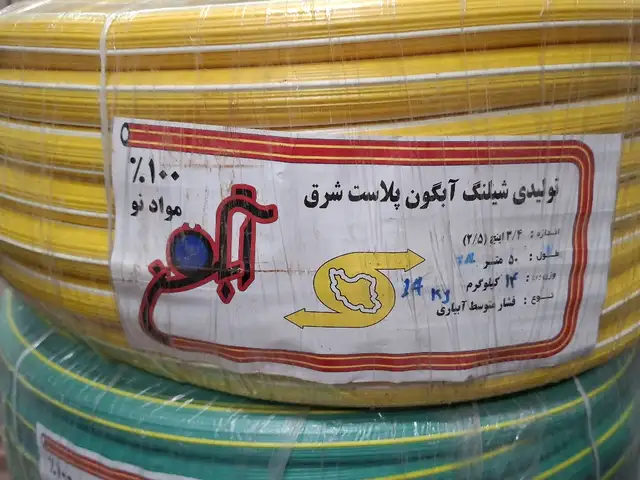 ٪۱۰۰
مواد نو
آبگون
تولیدی شیلنگ آبگون پلاست شرق
اندازه : ۳/۴ اینچ (۲/۵)
طول : ۵۰ متر
وزن : ۱۴ کیلوگرم
نوع : فشار متوسط آبیاری
٪۱۰۰